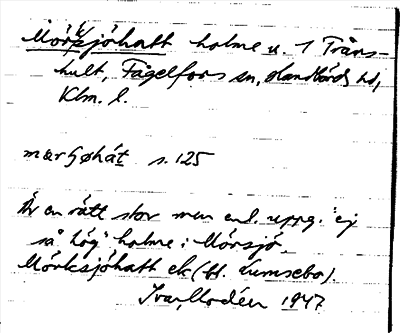 Mörksjöhatt holme u. 1 Träns-
hult, Fågelfors sn, Handbörds hd,
Klm. l.
s. 125
Är en rätt stor men enl. uppg. "ej
så hög" holme i Mörsjö.
Mörksjöhatt ek (bl. Lumsebo).
Ivar Modéer 1947